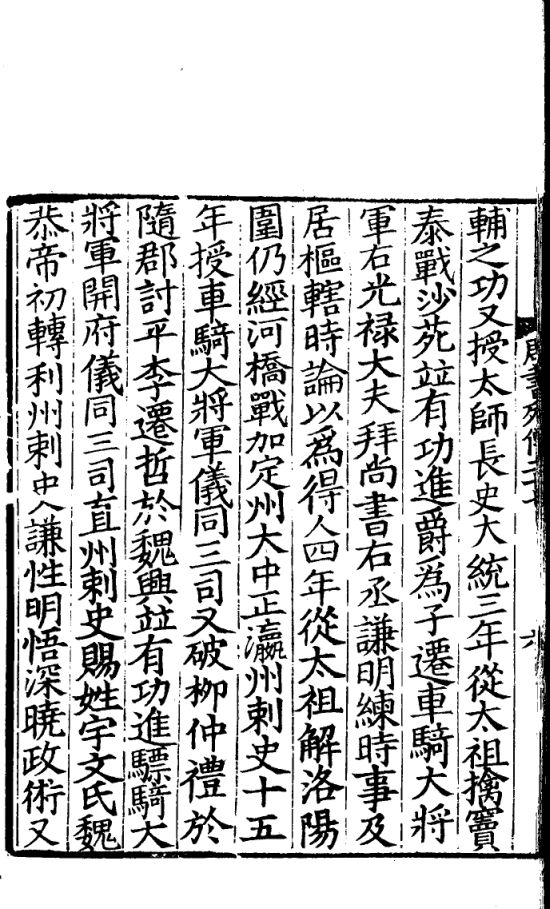 周書列傳二十七
六
輔之功又授太師長史大統三年從太祖擒竇
泰戰沙苑並有功進爵為子遷車騎大將
軍右光祿大夫拜尚書右丞謙明練時事及
居樞轄時論以為得人四年從太祖解洛陽
圍仍經河橋戰加定州大中正瀛州刺史十五
年授車騎大將軍儀同三司又破柳仲禮於
隨郡討平李遷哲於魏興並有功進驃騎大
將軍開府儀同三司直州刺史賜姓宇文氏魏
恭帝初轉利州刺史謙性明悟深曉政術又